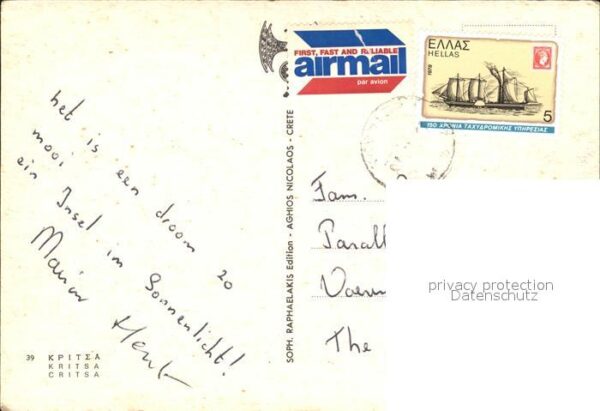 FIRST, FAST AND RELIABLE
airmail
par avion
ΕΛΛΑΣ
HELLAS
1978
5
150 ΧΡΟΝΙΑ ΤΑΧΥΔΡΟΜΙΚΗΣ ΥΠΗΡΕΣΙΑΣ
het is een droom zo
mooi
ein Insel im Sonnenlicht!
Marian
Henk
SOPH. RAPHAELAKIS Edition - AGHIOS NICOLAOS - CRETE
Fam.
Parall
The
privacy protection
Datenschutz
39 ΚΡΙΤΣΑ
KRITSA
CRITSA